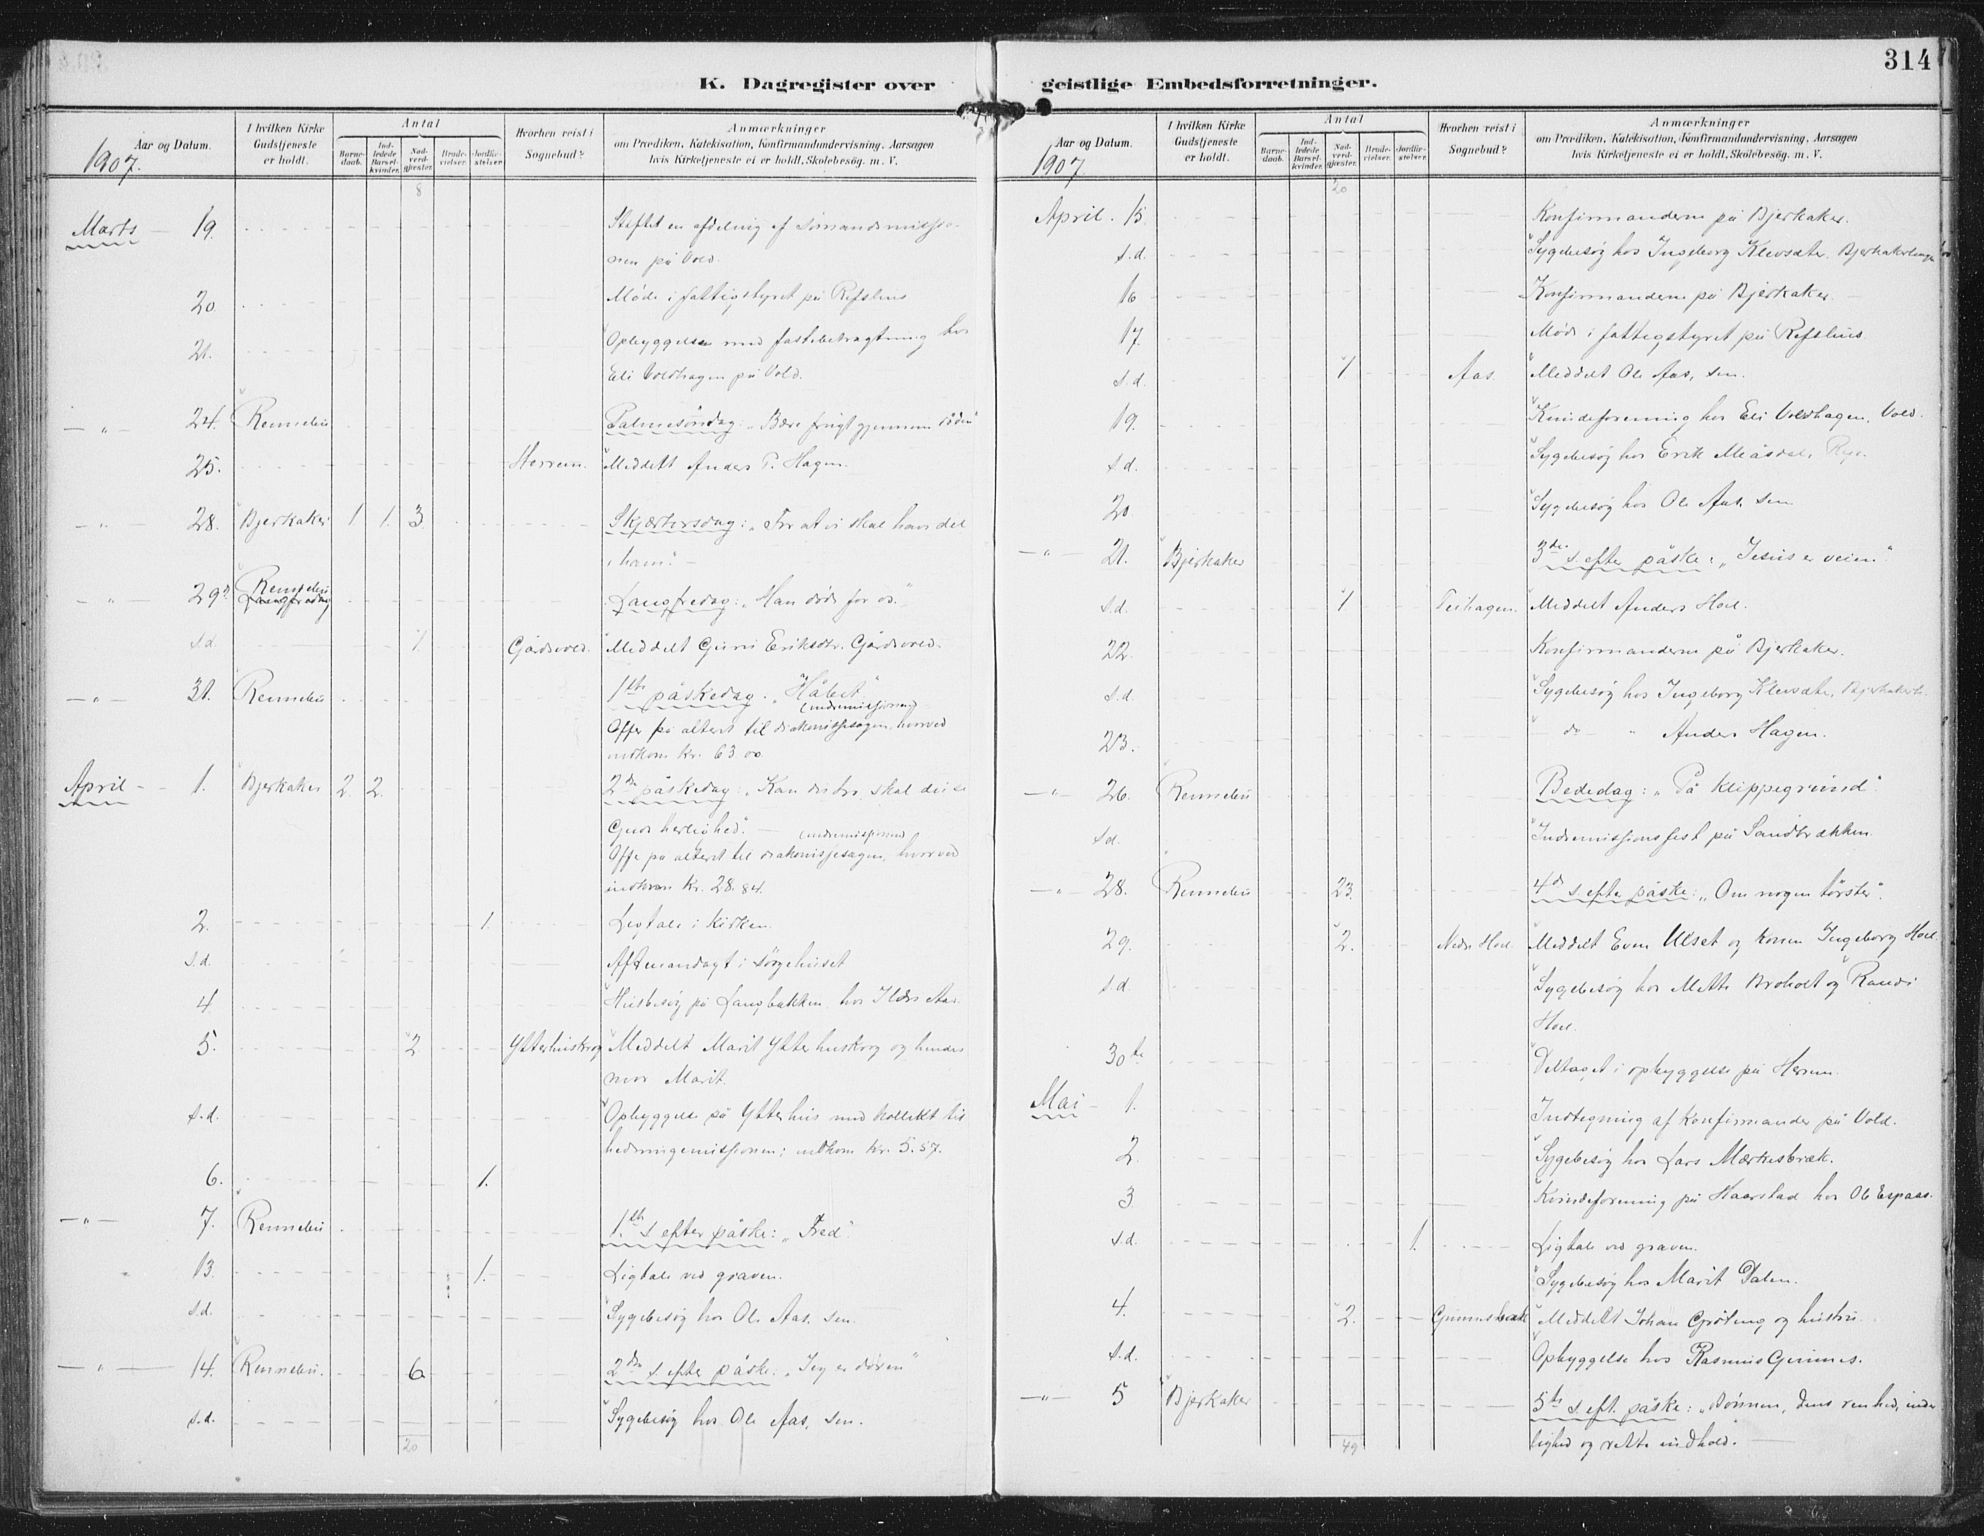 314
K. Dagregister over geistlige Embedsforretninger.
Aar og Datum. I hvilken Kirke Gudstjeneste er holdt. Antal Barnedaab. Indledede Barselkvinder. Nadverdgjæster. Brudevielser. Jordfæstelser. Hvorhen reist i Sognebud? Anmærkninger om Prædiken, Katekisation, Konfirmandundervisning, Aarsagen hvis Kirketjeneste ei er holdt, Skolebesøg. m. V.
1907.
8
Marts 19. Stiftet en afdeling af Sømandsmissio-
nen på Vold.
20 Møde i fattigstyret på Refshus
21. Opbyggelse med fastebetragtning hos
Eli Voldhagen på Vold.
— " — 24. Rennebu Palmesøndag: „Bære frugt gjennem døden"
25. Herrem. Meddelt Anders P. Hagen.
— " — 28. Bjerkaker 1 1. 3 Skjærtorsdag: „For at vi skal have del
i ham." —
— " — 29. Rennebu Langfredag Langfredag: „Han døde for os."
s.d. 1 Gårdsvold. Meddelt Guru Eriksdtr. Gårdsvold.
— " — 31. Rennebu 1ste påskedag. „Håbet".
(indremissionen)
Offer på alteret til diakonissesagen, hvorved
indkom kr. 63.00
April 1. Bjerkaker 2. 2. 2den påskedag: „Kan du tro, skal du se
Guds herlighed". — (indremissionen)
Offer på alteret til diakonissesagen, hvorved
indkom Kr. 28.84.
2. 1. Ligtale i kirken.
s.d. Aftenandagt i sørgehuset
4. Husbesøg på Langbakken hos Aas.
5. 2. Ytterhuskrog Meddelt Marit Ytterhuskrog og hendes
mor Marit.
s.d. Opbyggelse på Ytterhus med kollekt til
hedningemissionen; indkom kr. 5.57.
6. 1.
— " — 7. Rennebu 1ste s. efter påske: „Fred".
13. 1. Ligtale ved graven.
s.d. Sygebesøg hos Ole Aas, sen.
— " — 14. Rennebu. 6 2den s. efter påske: „Jeg er døren"
s.d. Sygebesøg hos Ole Aas, sen.
20
Aar og Datum. I hvilken Kirke Gudstjeneste er holdt. Antal Barnedaab. Indledede Barselkvinder. Nadverdgjæster. Brudevielser. Jordfæstelser. Hvorhen reist i Sognebud? Anmærkninger om Prædiken, Katekisation, Konfirmandundervisning, Aarsagen hvis Kirketjeneste ei er holdt, Skolebesøg. m. V.
1907
20
April. 15. Konfirmanderne på Bjerkaker.
s.d. Sygebesøg hos Ingeborg Klevsæter,
16 Konfirmanderne på Bjerkaker. —
17. Møde i fattigstyret på Refshus.
s.d. 1 Aas. Meddelt Ole Aas, sen.
19. Kvindeforening hos Eli Voldhagen, Vold.
s.d. Sygebesøg hos Erik
20 Sygebesøg hos Ole Aas, sen
— " — 21. Bjerkaker 3die s. efter påske: „Jesus er veien."
s.d. 1 Teihagen. Meddelt Anders Hoel.
22. Konfirmanderne på Bjerkaker.
s.d. Sygebesøg hos Ingeborg Klevsæter,
23. do — " Anders Hagen.
— " — 26. Rennebu Bededag: „På klippegrund".
s.d. Indremissionsfest på Sandbrækken.
— " — 28. Rennebu 23. 4de s. efter påske: „Om nogen tørster".
29. 2. Nedre Hoel Meddelt Even Ulset og konen Ingeborg Hoel.
s.d. Sygebesøg hos Mette Broholt og Randi
Hoel.
30te Deltaget i opbyggelse på Herrem.
Mai 1. Indtegning af konfirmander på Vold.
2. Sygebesøg hos Lars Mærkesbræk.
3 Kvindeforening på Haarstad hos Ole Espaas.
s.d. 1. Ligtale ved graven.
Sygebesøg hos Marit Dalen.
4. 2. Gunnesbræk Meddelt Johan Grøting og hustru.
s.d. Opbyggelse hos Rasmus Gunnes.
— " — 5 Bjerkaker 5te s. eft. påske: „Bønnen, dens renhed, inder
lighed og rette indhold. —
49